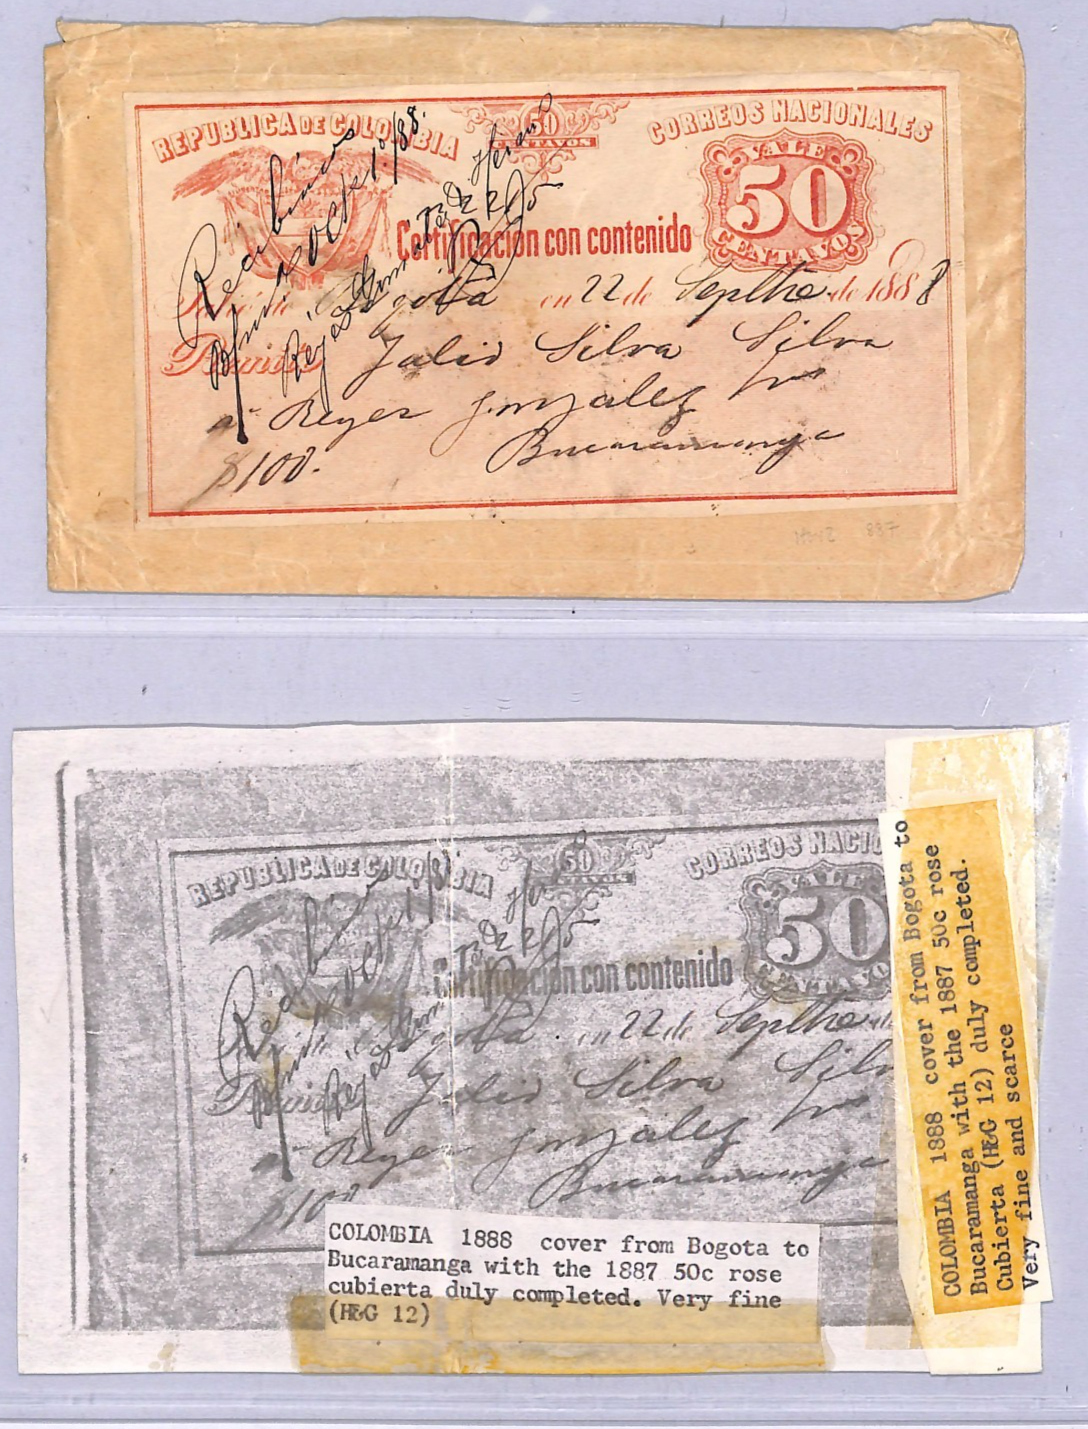 REPUBLICA DE COLOMBIA
50
CENTAVOS
CORREOS NACIONALES
VALE
50
CENTAVOS
Certificación con contenido
Recibimos
Octe 1º/88.
Bogotá en 22 de Septbre. de 1888
Remite Julio Silva Silva
a Reyes González Hos
Bucaramanga
$100.
REPUBLICA DE COLOMBIA
50
CENTAVOS
CORREOS NACIO
VALE
50
CENTAVO
Certificación con contenido
Recibimos
Bogotá en 22 de Septbre
Remite Julio Silva Silv
a Reyes González Hos
Bucaramanga
$100
COLOMBIA 1888 cover from Bogota to
Bucaramanga with the 1887 50c rose
cubierta duly completed. Very fine
(H&G 12)
COLOMBIA 1888 cover from Bogota to
Bucaramanga with the 1887 50c rose
Cubierta (H&G 12) duly completed.
Very fine and scarce